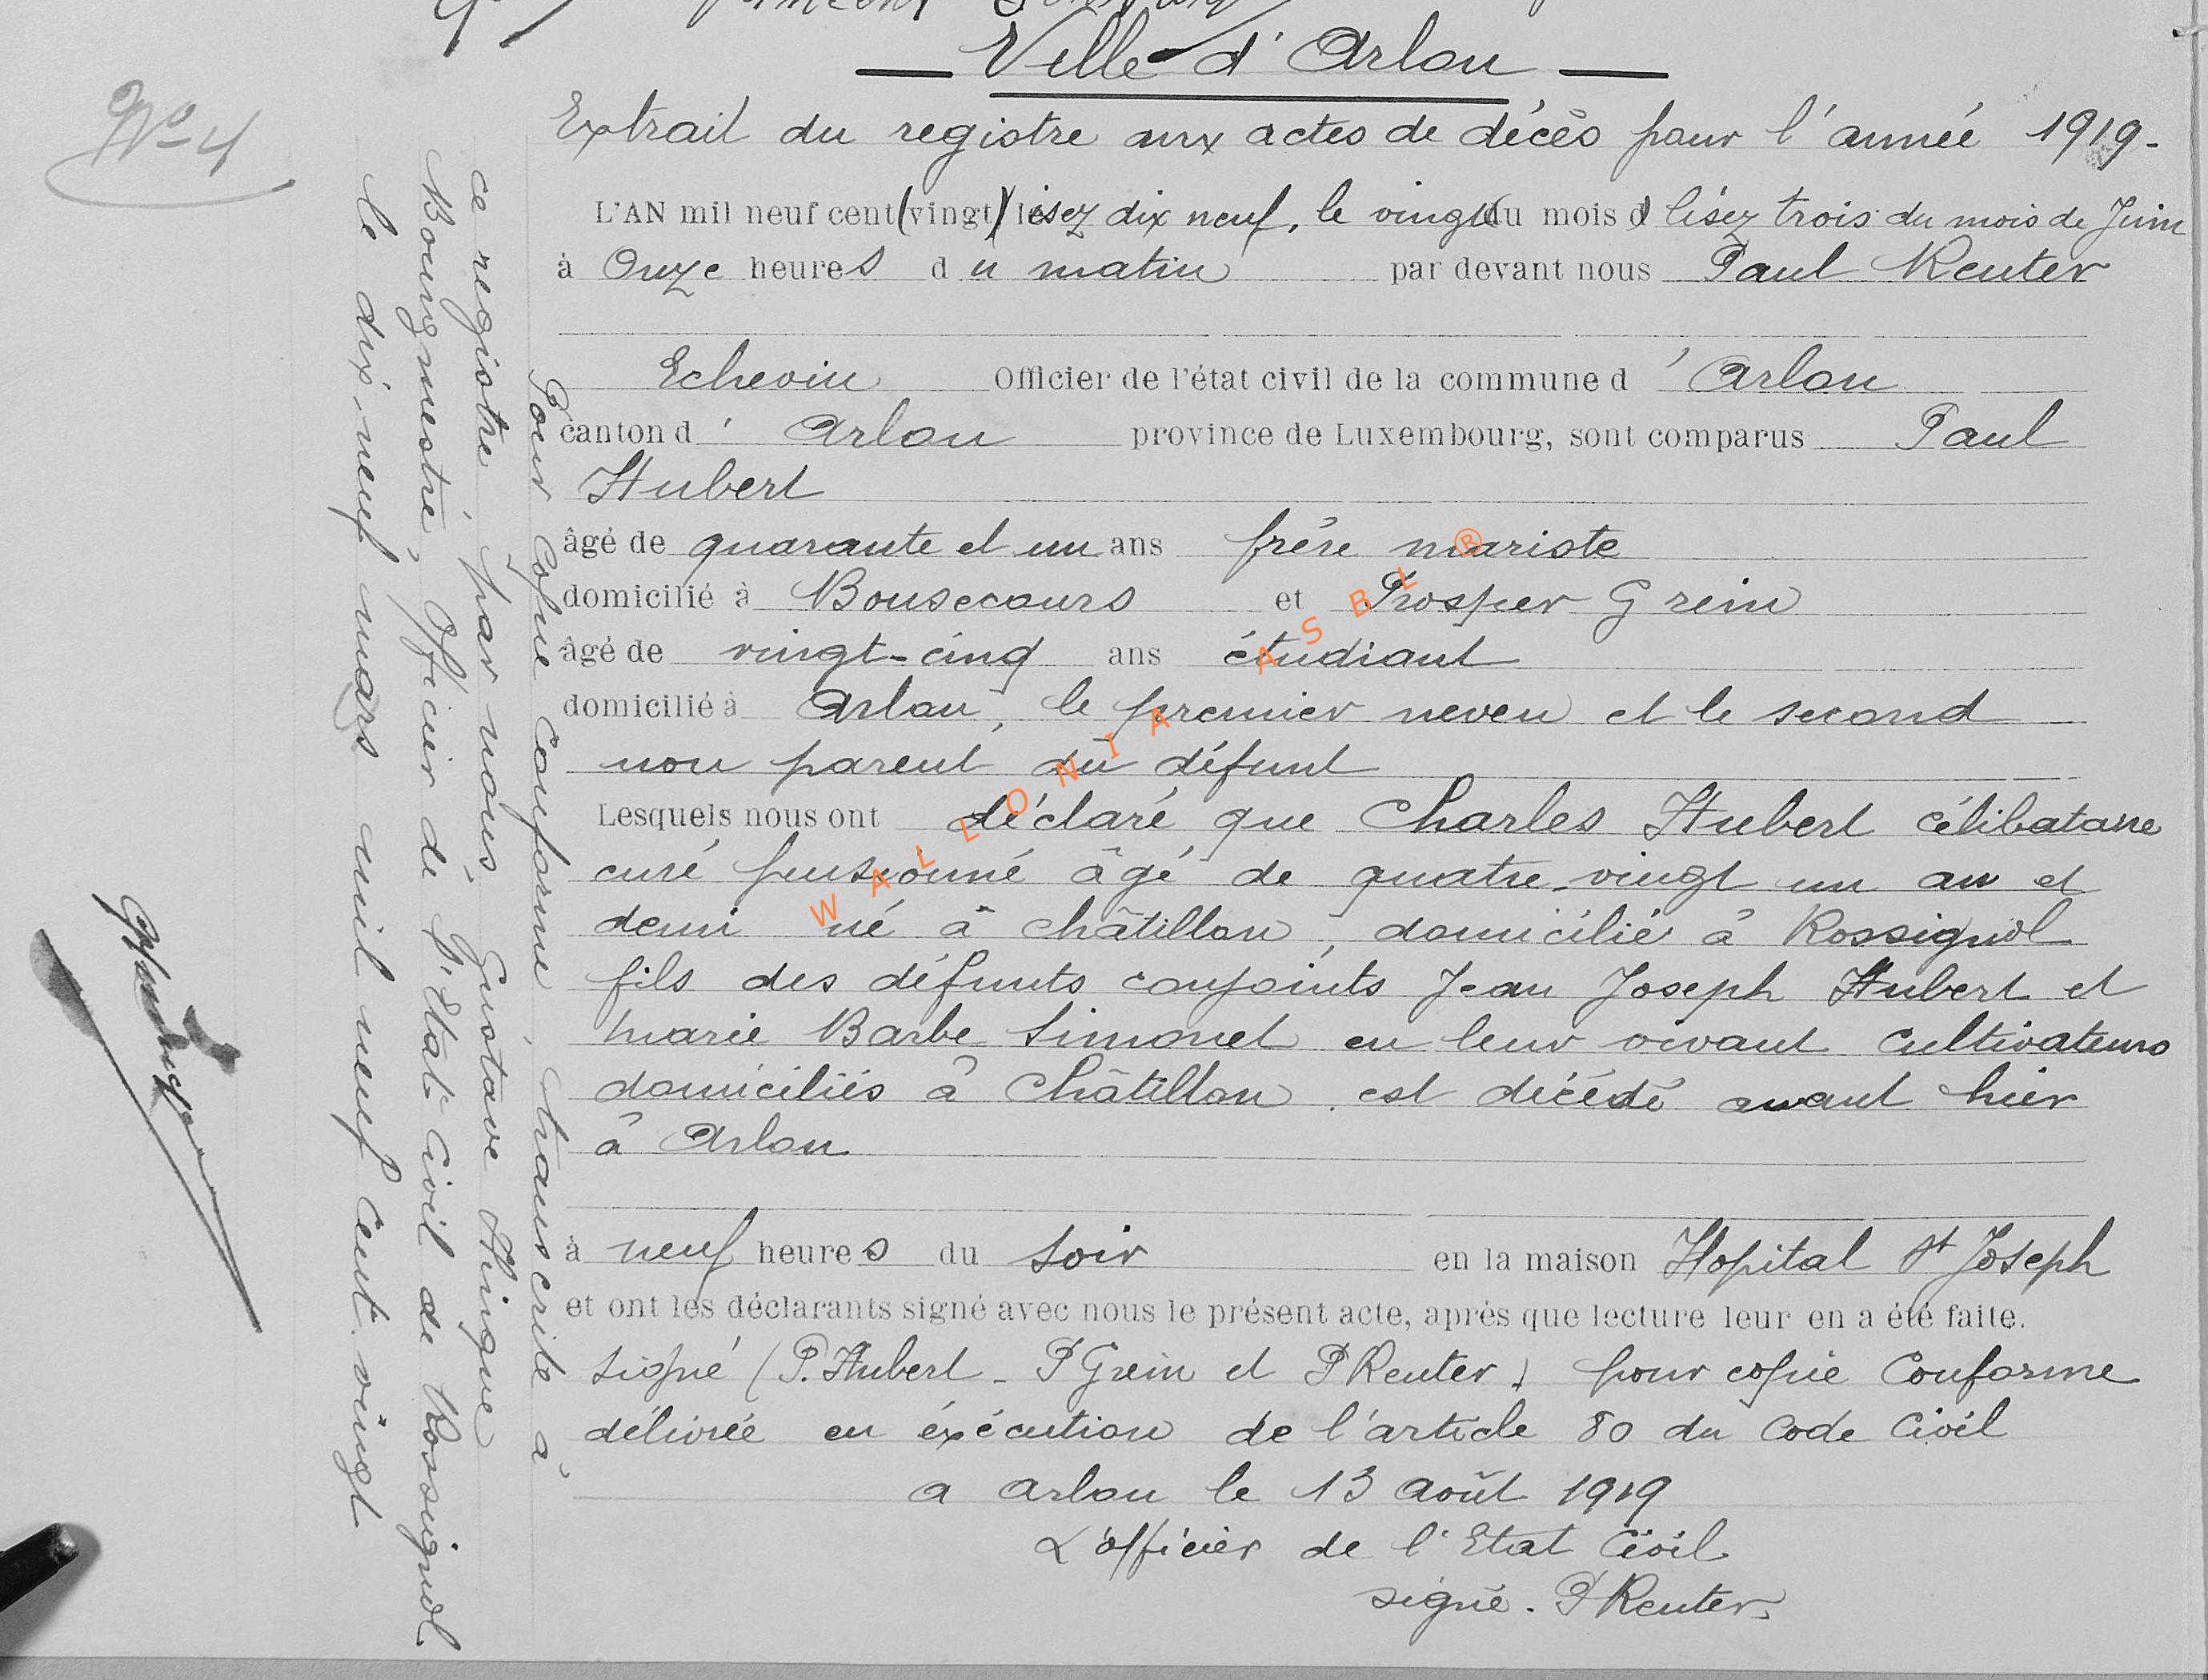 Ville d'Arlon
Extrait du registre aux actes de décès pour l'année 1919-
N° 4
L'AN mil neuf cent (vingt) lisez dix neuf, le vingt (du mois d) lisez trois du mois de Juin
à Onze heures du matin par devant nous Paul Reuter
Echevin Officier de l'état civil de la commune d'Arlon
canton d'Arlon province de Luxembourg, sont comparus Paul
Hubert
âgé de quarante et un ans frère mariste
domicilié à Bonsecours et Prosper Grein
âgé de vingt-cinq ans étudiant
domicilié à Arlon, le premier neveu et le second
non parent du défunt
Lesquels nous ont déclaré que Charles Hubert célibataire
curé pensionné âgé de quatre-vingt un an et
demi né à Châtillon, domicilié à Rossignol
fils des défunts conjoints Jean Joseph Hubert et
Marie Barbe Simonet en leur vivant cultivateurs
domiciliés à Châtillon est décédé avant hier
à Arlon
à neuf heures du soir en la maison Hopital St Joseph
et ont les déclarants signé avec nous le présent acte, après que lecture leur en a été faite.
signé (P. Hubert - P Grein et P Reuter) pour copie Conforme
délivrée en éxécution de l'article 80 du Code Civil
a Arlon le 13 Août 1919
L'officier de l'Etat Civil
signé. P Reuter.
Pour Copie Conforme, transcrite à
ce registre, par nous, Gustave Hinque
Bourgmestre, Officier de l'Etat-Civil de Rossignol
le dix-neuf mars mil neuf Cent vingt
WALLONIA ASBL ®